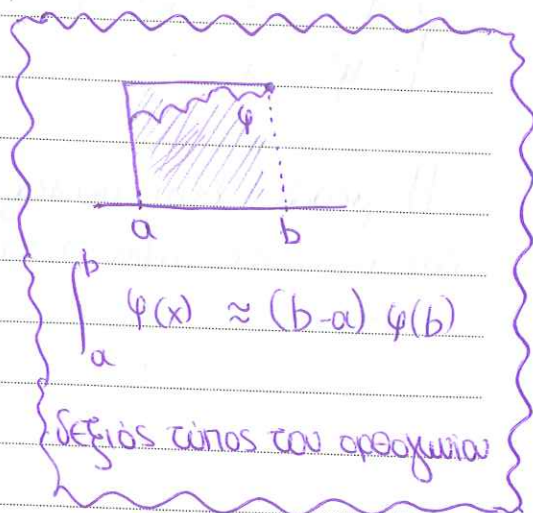 φ
a b
∫_a^b φ(x) ≈ (b-a) φ(b)
δεξιός τύπος του ορθογωνίου